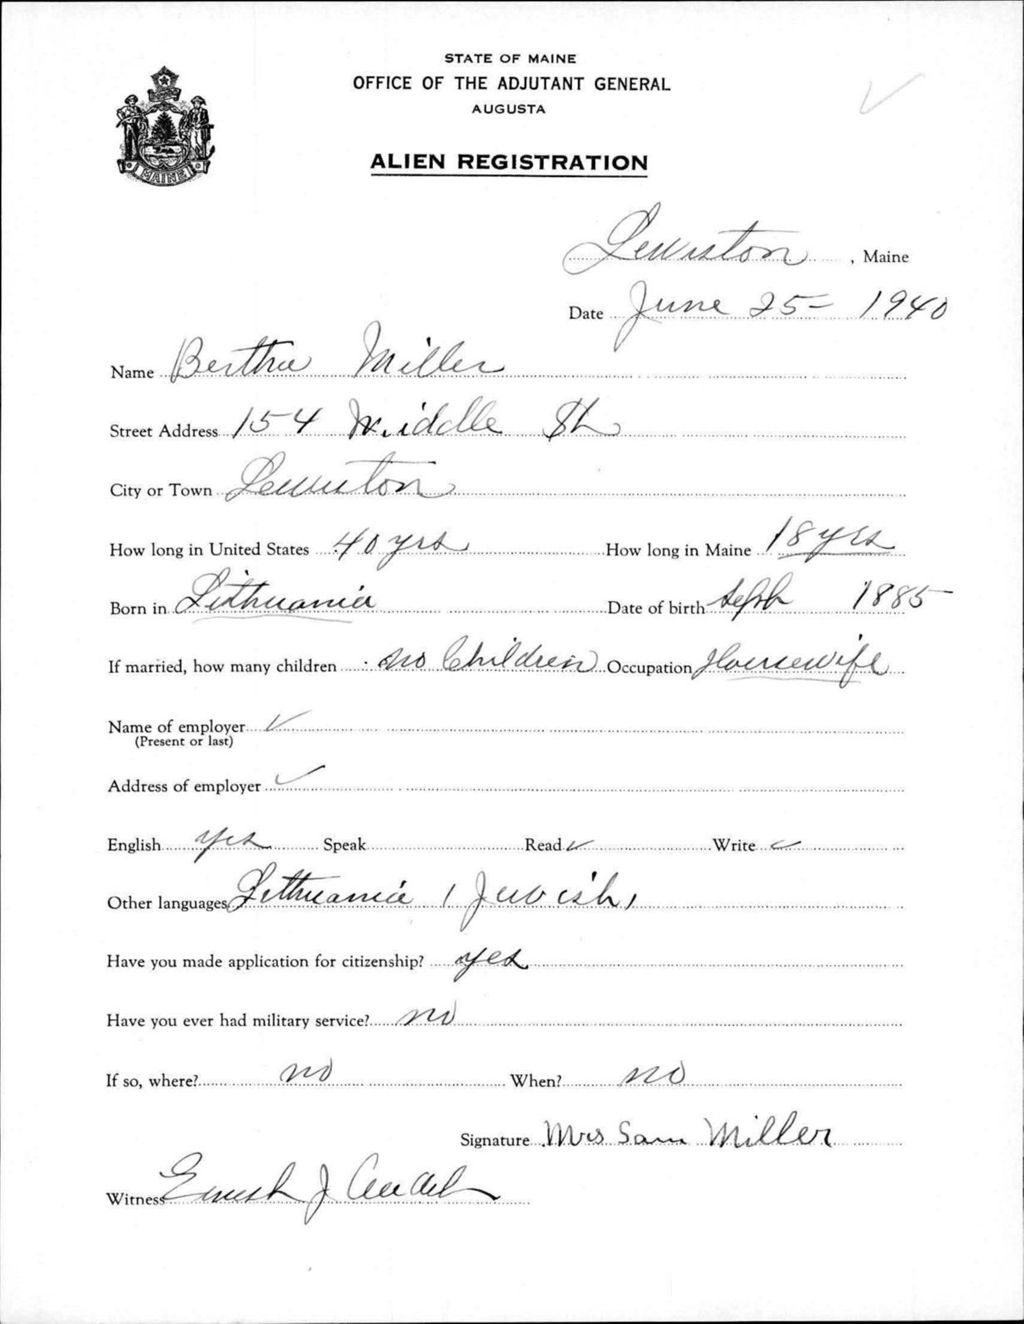 STATE OF MAINE
OFFICE OF THE ADJUTANT GENERAL
AUGUSTA
MAINE
ALIEN REGISTRATION
Lewiston, Maine
Date June 25 - 1940
Name Bertha Miller
Street Address 154 Middle St
City or Town Lewiston
How long in United States 40 yrs How long in Maine 18 yrs
Born in Lithuania Date of birth Sept 1885
If married, how many children no Children Occupation Housewife
Name of employer ✓
(Present or last)
Address of employer ✓
English yes Speak Read ✓ Write ✓
Other languages Lithuania, Jewish,
Have you made application for citizenship? yes
Have you ever had military service? no
If so, where? no When? no
Signature Mrs Sam Miller
Witness J